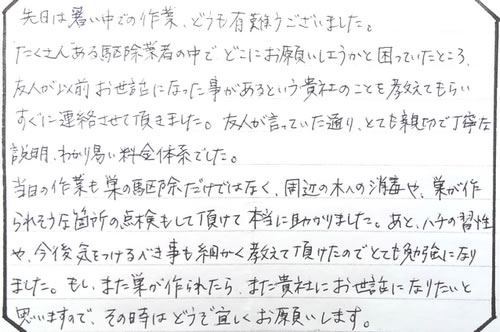 先日は暑い中での作業、どうも有難うございました。
たくさんある駆除業者の中で、どこにお願いしようかと困っていたところ、
友人が以前お世話になった事があるという貴社のことを教えてもらい
すぐに連絡させて頂きました。友人が言っていた通り、とても親切で丁寧な
説明、わかり易い料金体系でした。
当日の作業も巣の駆除だけではなく、周辺の木への消毒や、巣が作
られそうな箇所の点検もして頂けて本当に助かりました。あと、ハチの習性
や、今後気をつけるべき事も細かく教えて頂けたのでとても勉強になり
ました。もし、また巣が作られたら、また貴社にお世話になりたいと
思いますので、その時はどうぞ宜しくお願いします。